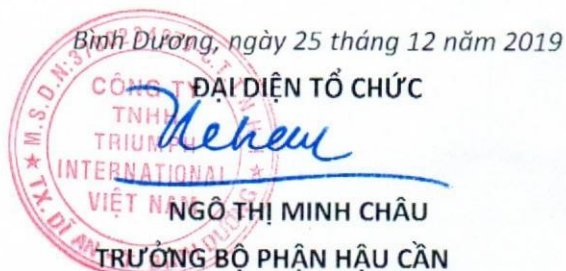 Bình Dương, ngày 25 tháng 12 năm 2019
ĐẠI DIỆN TỔ CHỨC
CÔNG TY
TNHH
TRIUMPH
INTERNATIONAL
VIỆT NAM
M.S.D.N:
TX. DĨ AN
NGÔ THỊ MINH CHÂU
TRƯỞNG BỘ PHẬN HẬU CẦN